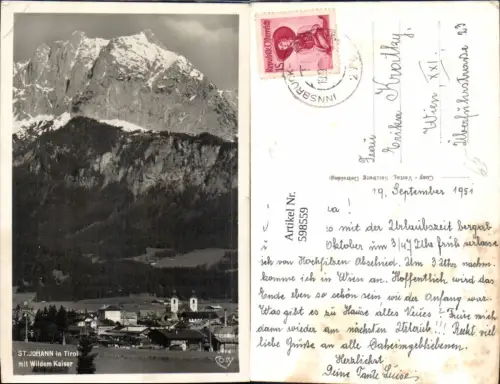 ST. JOHANN in Tirol
mit Wildem Kaiser
Republik Österreich
INNSBRUCK
Frau
Erika Kratky
Wien XXI.
Überfuhrstrasse 23
Cosy-Verlag, Salzburg
19. September 1951
Artikel Nr.
598559
a!
so mit der Urlaubszeit bergab
Oktober um 3/47 Uhr früh verlasse
ich von Hochfilzen Abschied. Um 3 Uhr nachm.
komme ich in Wien an. Hoffentlich wird das
Ende eben so schön sein wie der Anfang war.
Was gibt es zu Hause alles Neues? Freue mich
dann wieder am nächsten Urlaub!!! Recht viel
liebe Grüße an alle Daheimgebliebenen.
Herzlichst
Deine Tante Luise